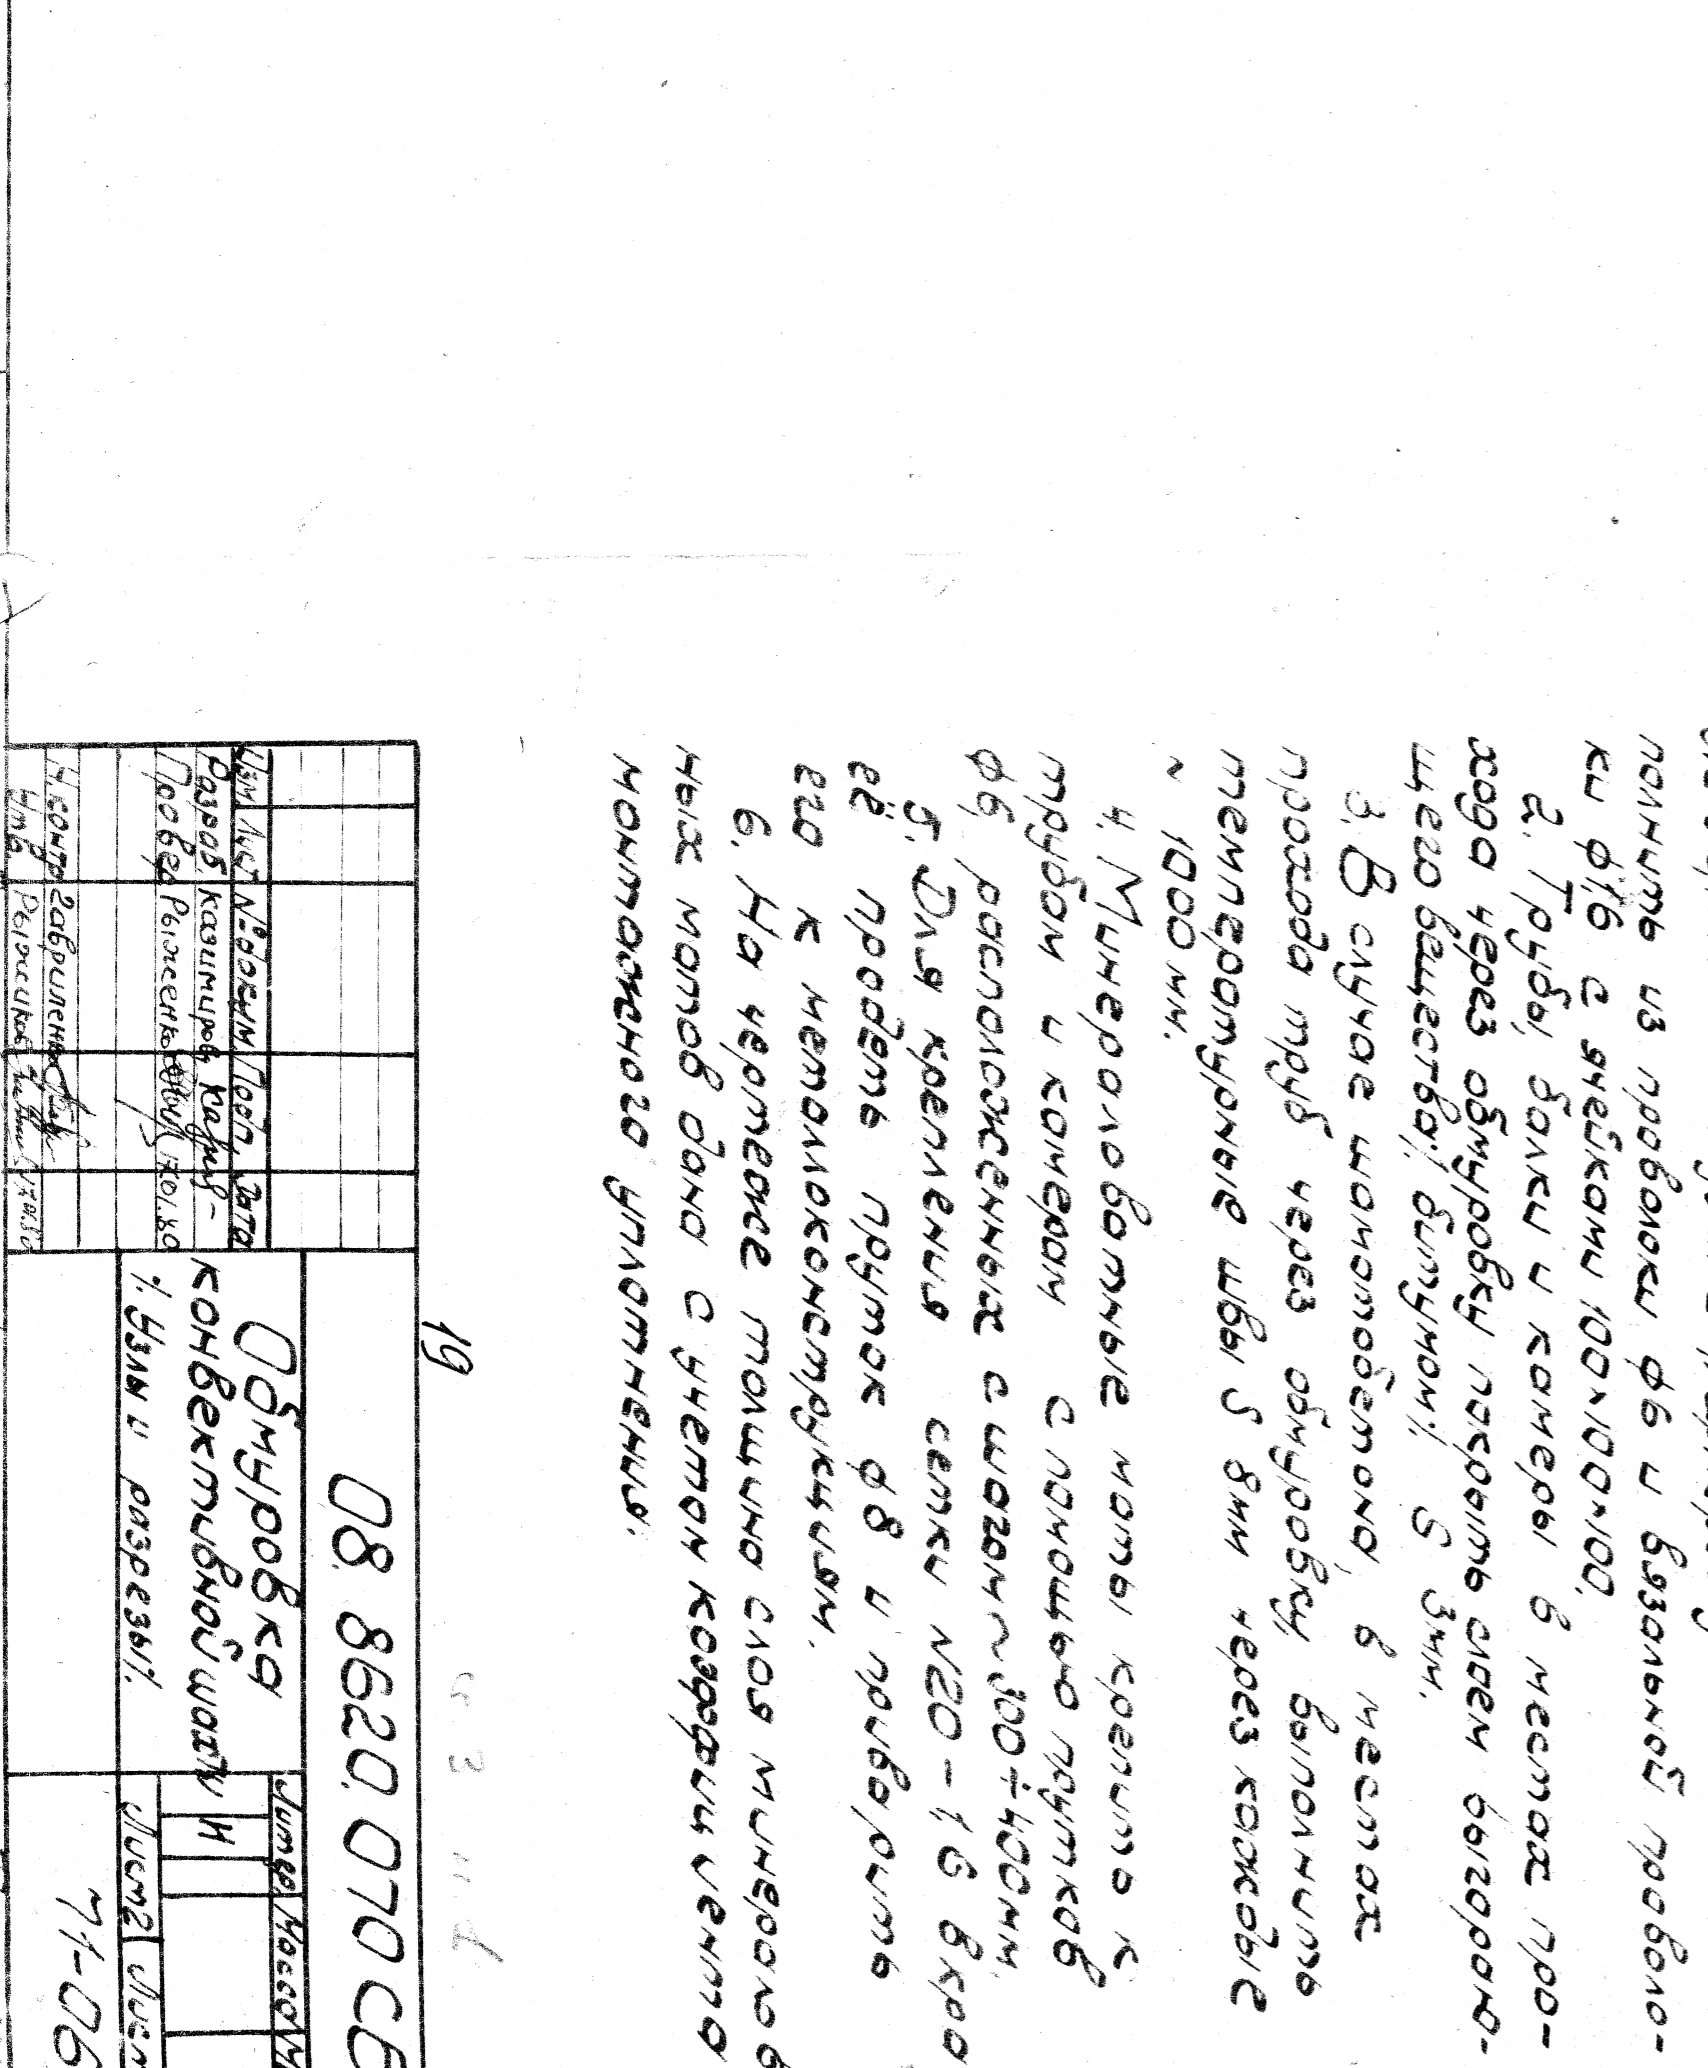 полнить из проволоки ф6 и вязальной проволо-
ки ф1,6 с ячейками 100×100×100.
2. Трубы, балки и камеры в местах про-
хода через обмуровку покрыть слоем выгораю-
щего вещества /битумом/ S 3мм.
3. В случае шамотобетона, в местах
прохода труб через обмуровку, выполнить
температурные швы S 8мм через каждые
~ 1000мм.
4. Минераловатные маты крепить к
трубам и камерам с помощью прутков
ф6, расположенных с шагом ~300÷400мм.
5. Для крепления сетки N20-1.6 вкра
её продеть пруток ф8 и приварить
его к металлоконструкциям.
6. На чертеже толщина слоя минералов
ных матов дана с учетом коэффициента
монтажного уплотнения.
19
08.8620.070СБ
Изм Лист № докум Подп. Дата
Разраб. Казимиров
Провер Рыженко
Н.контр Гавриленко
Утв. Рыжиков
Обмуровка
конвективной шахты
/. Узлы и разрезы/.
Литер. Масса М
И
Лист 2 Лист
71-06